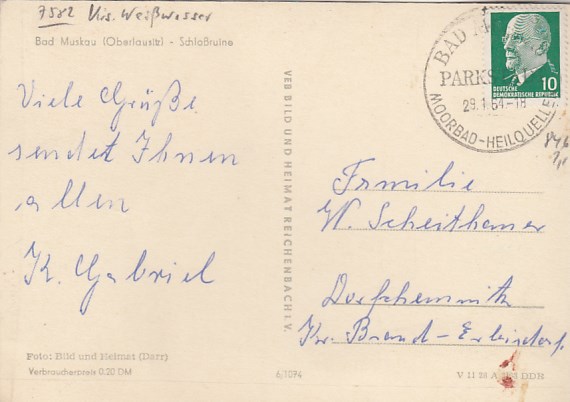 7582 Krs. Weißwasser
Bad Muskau (Oberlausitz) - Schloßruine
Viele Grüße
sendet Ihnen
allen
K. Gabriel
Foto: Bild und Heimat (Darr)
Verbraucherpreis 0.20 DM
VEB BILD UND HEIMAT REICHENBACH I. V.
6/1094
BAD
PARKS
29.1.64.-18
MOORBAD-HEILQUELLE
10
DEUTSCHE
DEMOKRATISCHE REPUBLIK
Familie
W. Scheithauer
Dorfchemnitz
Kr. Brand-Erbisdorf
V 11 28 A DDR